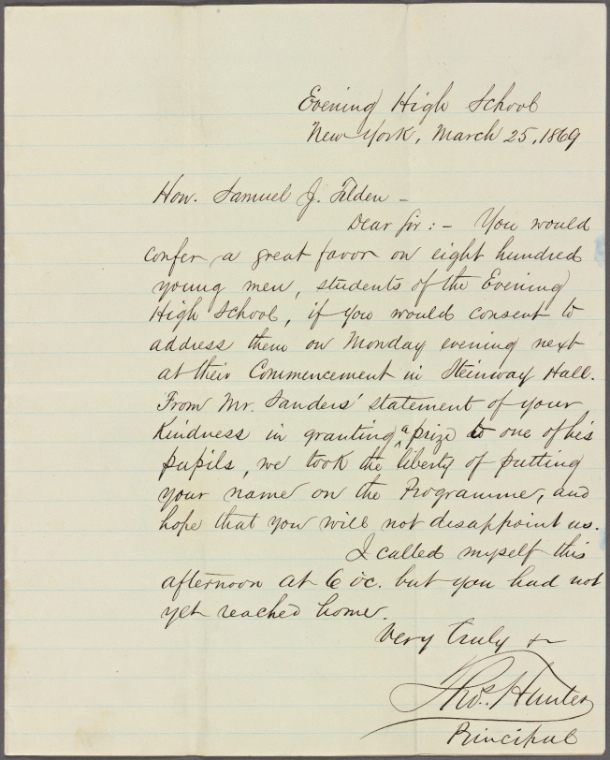 Evening High School
New York, March 25, 1869
Hon. Samuel J. Tilden -
Dear Sir : - You would
confer a great favor on eight hundred
young men, students of the Evening
High School, if you would consent to
address them on Monday evening next
at their Commencement in Steinway Hall.
From Mr. Sanders' statement of your
kindness in granting a prize to one of his
pupils, we took the liberty of putting
your name on the Programme, and
hope that you will not disappoint us.
I called myself this
afternoon at 6 oc. but you had not
yet reached home.
Very truly &c
Thos. Hunter
Principal